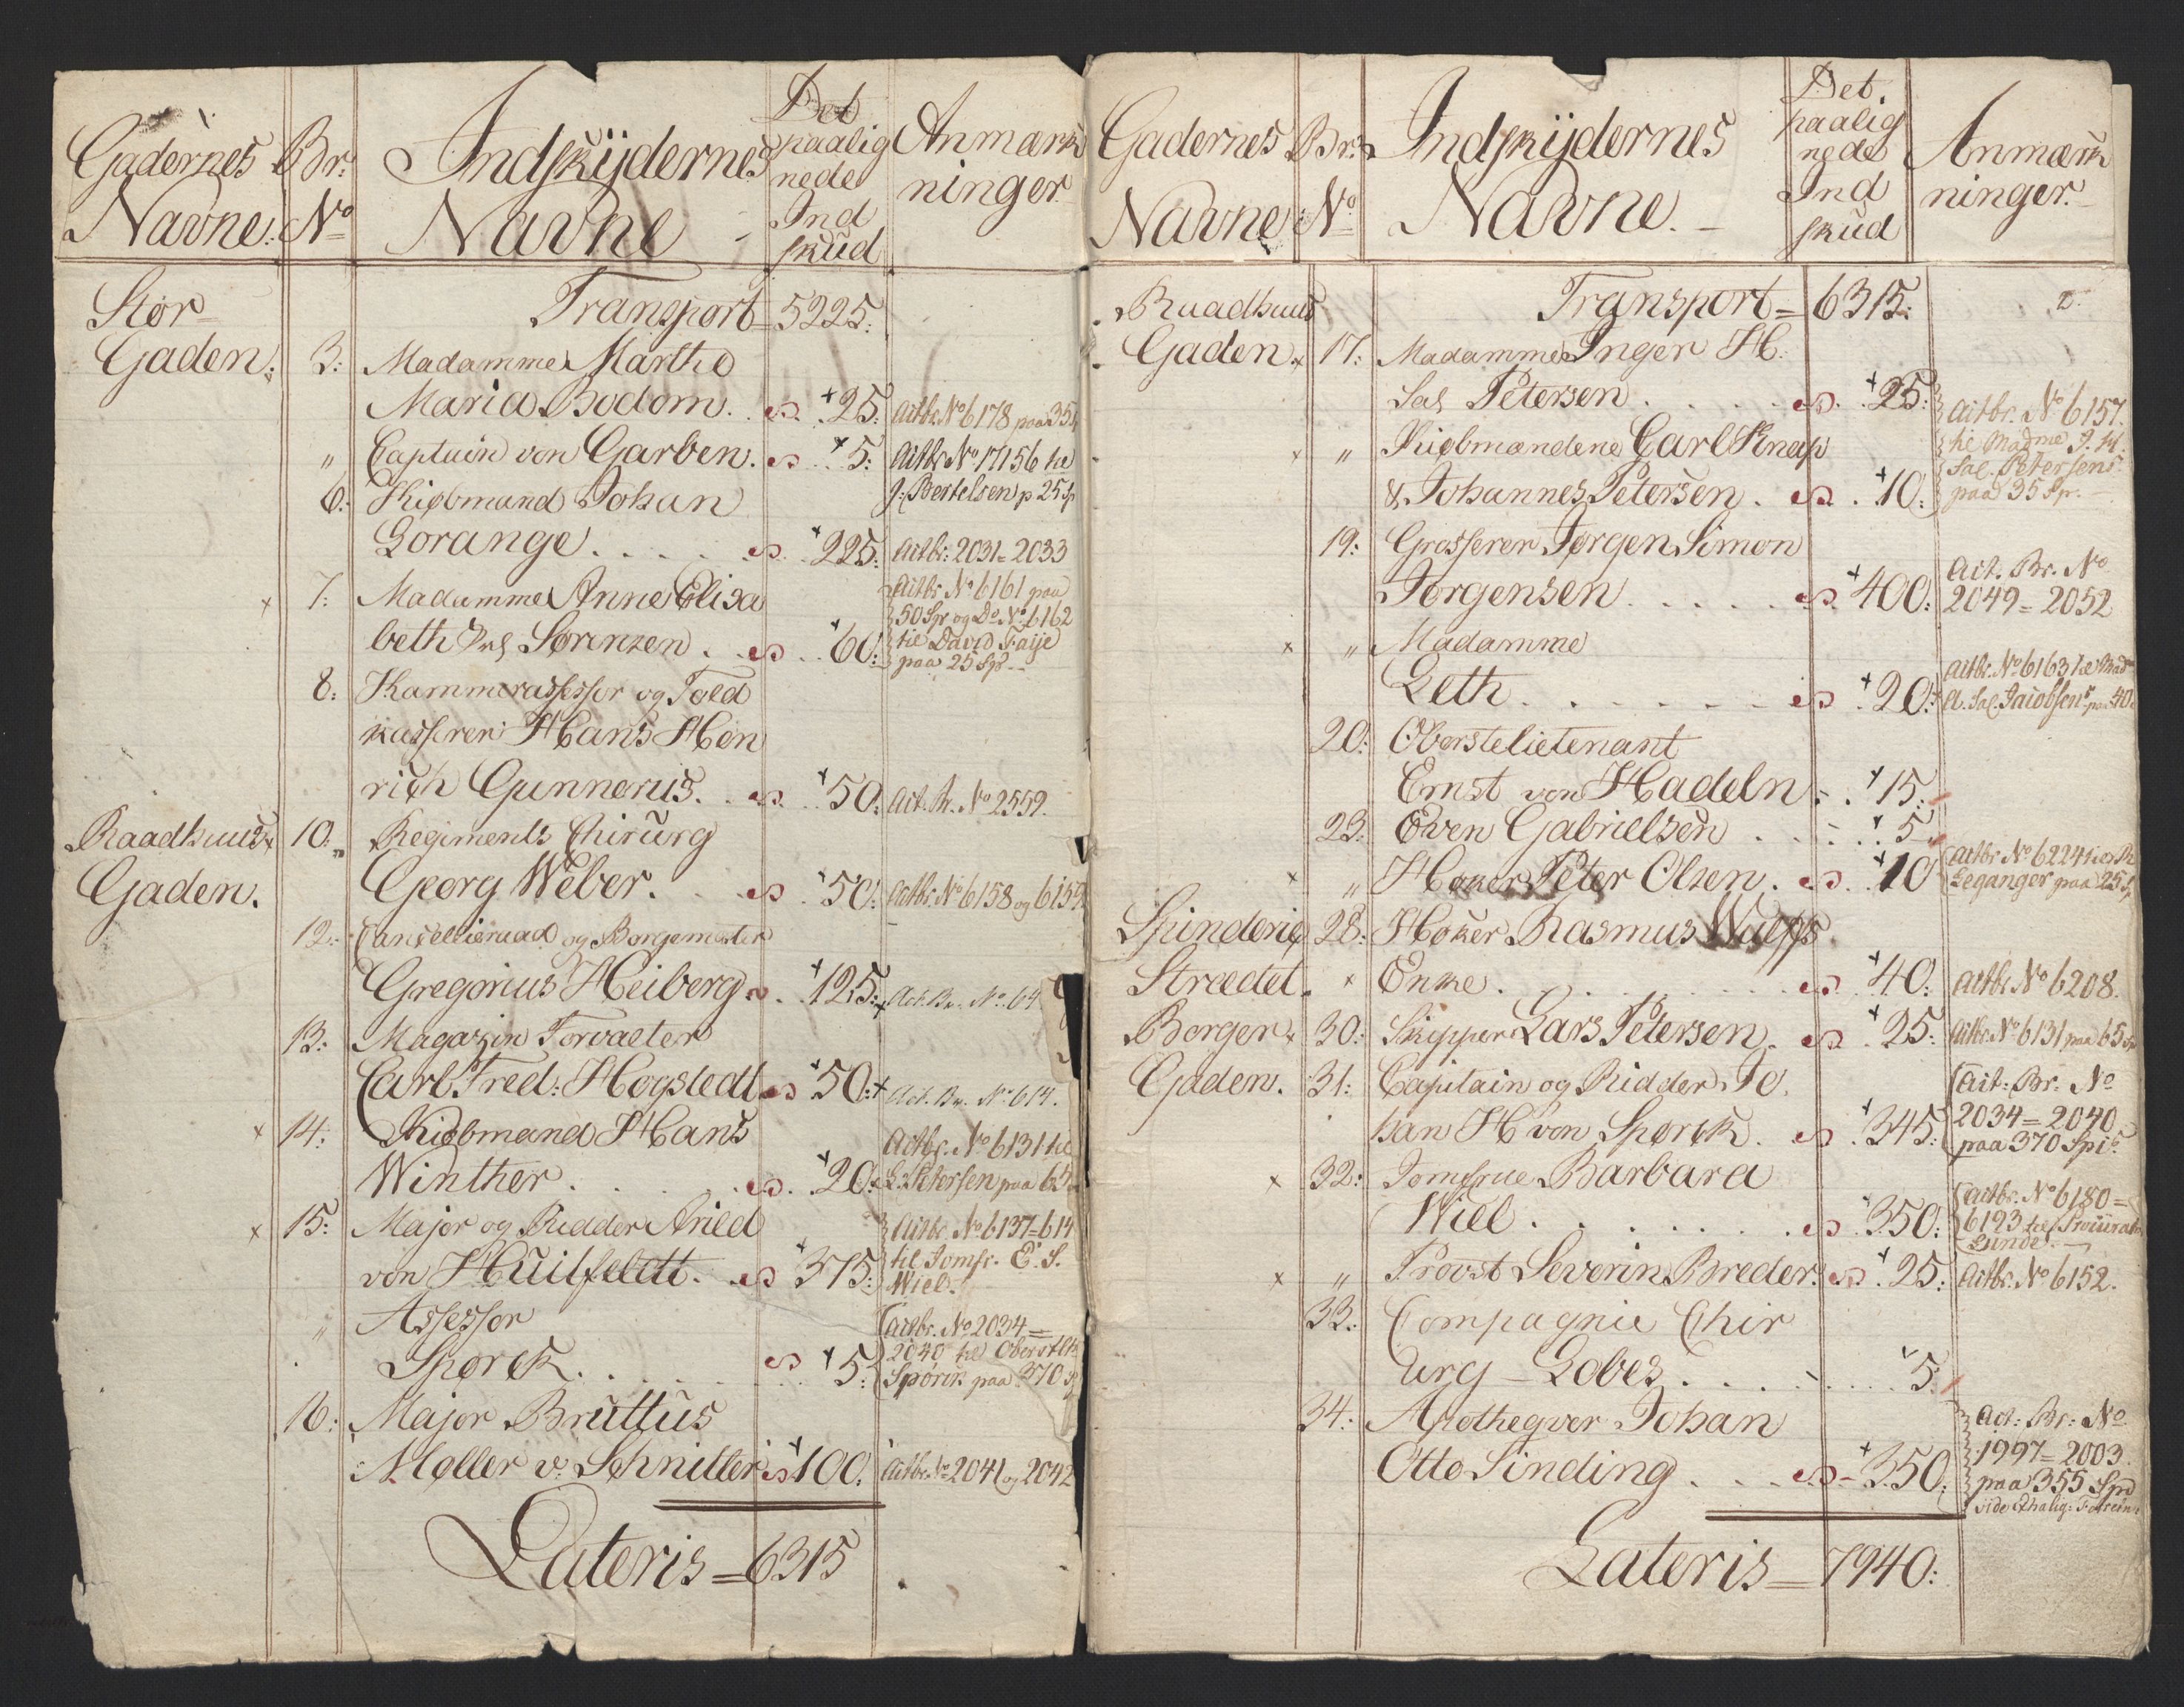 Gadernes
Navne.
Br:
No
Indskÿdernes
Navne
Det
paalig
nede
Ind
skud
Anmærk
ninger
Stor
Gaden.
Transport = 5225:
3: Madamme Marthe
Maria Bodom. 25: Actbr. No 6178 paa 35
" Captain von Garben. 5: Actbr No 17156 til
J: Bertelsen p 25 Sp
6: Kiøbmand Johan
Lorange. 225: Actbr: 2031=2033
7: Madamme Anne Elisa
beth Sal Sørenzen. 60:
Actbr No 6161 paa
50 Spr og Do No 6162
til David Faije
paa 25 Spr
8: Kammerassessor og Told
kasserer Hans Hen
rich Gunnerus. 50: Act. Br. No 2559.
Raadhuus
Gaden.
10: Regiments Chirurg
Georg Weber. 50: Actbr. No 6158 og 6159
12: Cancellieraad og Borgemester
Gregorius Heiberg 125: Act. Br. No. 64
13: Magazin Forvalter
Carl Fred: Hogstedt 50: Act. Br. No. 614.
14: Kiøbmand Hans
Winther. 20:
Actbr. No 6131 til
L: Petersen paa 65
15: Major og Ridder Arild
von Huitfeldt. 375:
Actbr. No 6137=614
til Jomfr. E. S.
Wiel.
" Assessor
Spørck. 5:
Actbr. No 2034=
2040 til Oberstlt
Spørck paa 370 Sp
16: Major Bruttus
Møller v. Schnitler 100: Actbr. No 2041 og 2042
Lateris = 6315
Gadernes
Navne
Br:
No
Indskÿdernes
Navne.
Det
paalig
nede
Ind
skud
Anmærk
ninger.
Raadhuus
Gaden.
Transport = 6315: 2.
17: Madamme Inger H.
Sal Petersen. 25:
Actbr. No 6157.
til Madme I. H.
Sal. Petersens
paa 35 Sp.
" Kiøbmændene Carl Knap
& Johannes Petersen. 10:
19: Grosserer Jørgen Simon
Jørgensen. 400:
Act. Br. No
2049=2052
" Madamme
Leth. 20:
Actbr. No 6163 til Mad
A. Sal. Jacobsens paa 40
20: Oberstelietenant
Ernst von Hadeln. 15.
23: Even Gabrielsen 5
" Høker Peter Olsen. 10
Actbr No 6224 til
Leganger paa 25 S
Spinderie
Strædet.
28: Høker Rasmus
Enke. 40: Actbr No 6208.
Borger
Gaden.
30: Skipper Lars Petersen. 25: Actbr. No 6131 paa 65 Sp
31: Capitain og Ridder Jo
han H von Spørck. 345:
Act: Br. No
2034=2040
paa 370 Spis.
32: Jomfrue Barbara
Wiel. 350:
Actbr. No 6180=
6193 til Procurator
Lunde.
" Provst Severin Breder. 25: Actbr. No 6152.
33: Compagnie Chir
urg - Lobes. 5:
34: Apotheqver Johan
Otto Sinding. 350:
Act: Br: No
1997=2003.
paa 355 Spd
Lateris = 7940: